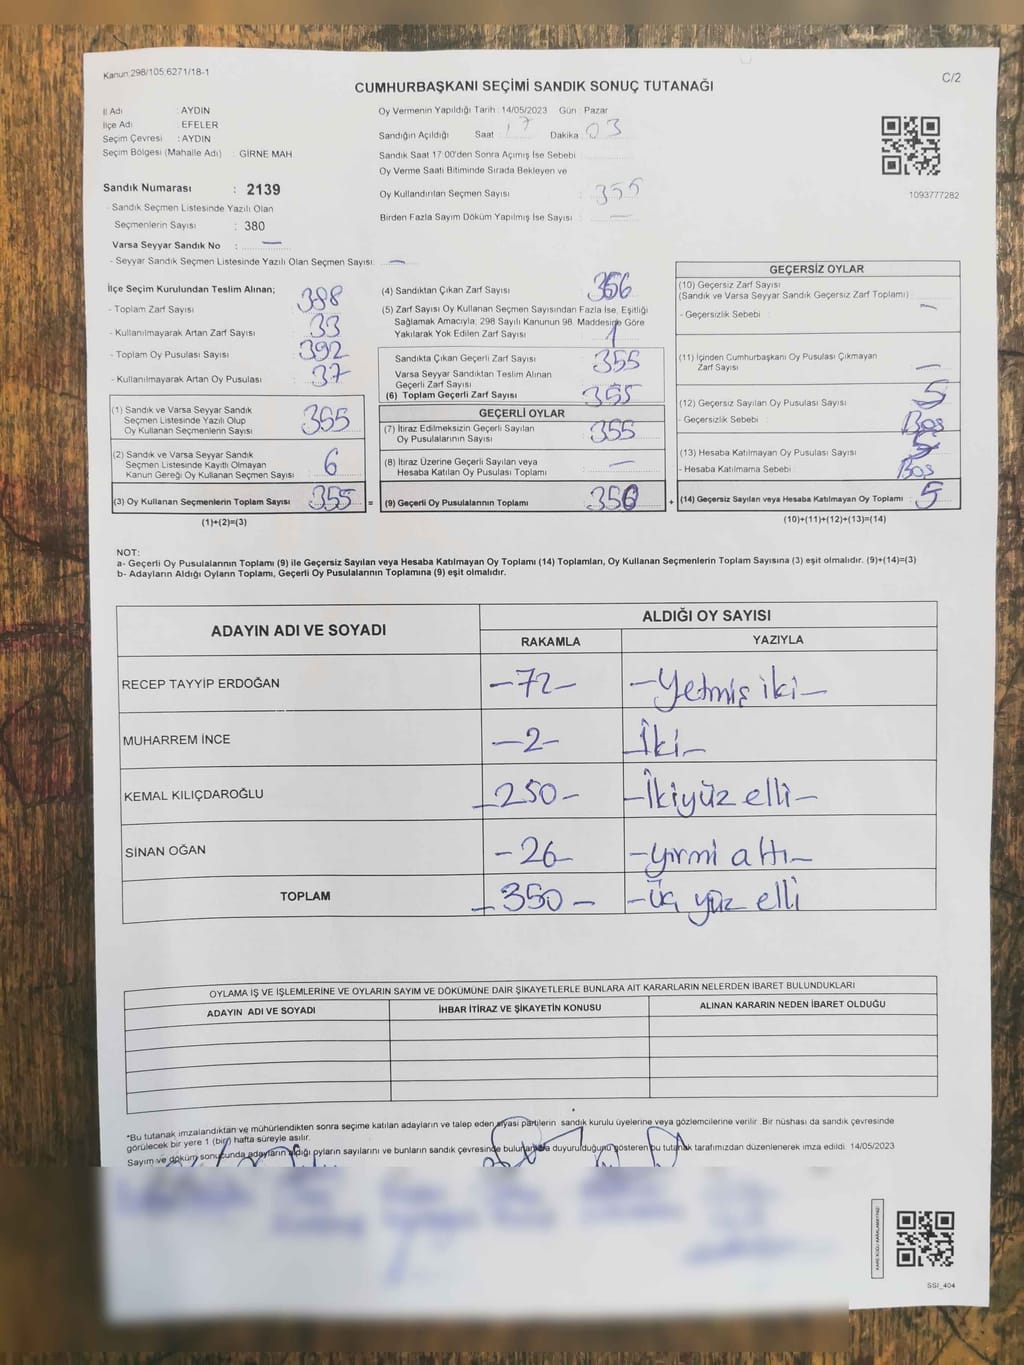 Kanun:298/105;6271/18-1
C/2
CUMHURBAŞKANI SEÇİMİ SANDIK SONUÇ TUTANAĞI
İl Adı : AYDIN
İlçe Adı : EFELER
Seçim Çevresi : AYDIN
Seçim Bölgesi (Mahalle Adı) : GİRNE MAH.
Sandık Numarası : 2139
- Sandık Seçmen Listesinde Yazılı Olan
Seçmenlerin Sayısı : 380
Varsa Seyyar Sandık No : —
- Seyyar Sandık Seçmen Listesinde Yazılı Olan Seçmen Sayısı: —
Oy Vermenin Yapıldığı Tarih : 14/05/2023 Gün : Pazar
Sandığın Açıldığı Saat : 17 Dakika : 03
Sandık Saat 17:00'den Sonra Açımış İse Sebebi :
Oy Verme Saati Bitiminde Sırada Bekleyen ve
Oy Kullandırılan Seçmen Sayısı : 355
Birden Fazla Sayım Döküm Yapılmış İse Sayısı : —
1093777282
İlçe Seçim Kurulundan Teslim Alınan;
- Toplam Zarf Sayısı : 388
- Kullanılmayarak Artan Zarf Sayısı : 33
- Toplam Oy Pusulası Sayısı : 392
- Kullanılmayarak Artan Oy Pusulası : 37
(1) Sandık ve Varsa Seyyar Sandık
Seçmen Listesinde Yazılı Olup
Oy Kullanan Seçmenlerin Sayısı : 355
(2) Sandık ve Varsa Seyyar Sandık
Seçmen Listesinde Kayıtlı Olmayan
Kanun Gereği Oy Kullanan Seçmen Sayısı : 6
(3) Oy Kullanan Seçmenlerin Toplam Sayısı : 355 =
(1)+(2)=(3)
(4) Sandıktan Çıkan Zarf Sayısı : 356
(5) Zarf Sayısı Oy Kullanan Seçmen Sayısından Fazla İse, Eşitliği
Sağlamak Amacıyla; 298 Sayılı Kanunun 98. Maddesine Göre
Yakılarak Yok Edilen Zarf Sayısı : 1
Sandıkta Çıkan Geçerli Zarf Sayısı : 355
Varsa Seyyar Sandıktan Teslim Alınan
Geçerli Zarf Sayısı :
(6) Toplam Geçerli Zarf Sayısı : 355
GEÇERLİ OYLAR
(7) İtiraz Edilmeksizin Geçerli Sayılan
Oy Pusulalarının Sayısı : 355
(8) İtiraz Üzerine Geçerli Sayılan veya
Hesaba Katılan Oy Pusulası Toplamı : —
(9) Geçerli Oy Pusulalarının Toplamı : 350 +
GEÇERSİZ OYLAR
(10) Geçersiz Zarf Sayısı
(Sandık ve Varsa Seyyar Sandık Geçersiz Zarf Toplamı) :
- Geçersizlik Sebebi : —
(11) İçinden Cumhurbaşkanı Oy Pusulası Çıkmayan
Zarf Sayısı : —
(12) Geçersiz Sayılan Oy Pusulası Sayısı : 5
- Geçersizlik Sebebi : Boş
(13) Hesaba Katılmayan Oy Pusulası Sayısı : 5
- Hesaba Katılmama Sebebi : Boş
(14) Geçersiz Sayılan veya Hesaba Katılmayan Oy Toplamı : 5
(10)+(11)+(12)+(13)=(14)
NOT:
a- Geçerli Oy Pusulalarının Toplamı (9) ile Geçersiz Sayılan veya Hesaba Katılmayan Oy Toplamı (14) Toplamları, Oy Kullanan Seçmenlerin Toplam Sayısına (3) eşit olmalıdır. (9)+(14)=(3)
b- Adayların Aldığı Oyların Toplamı, Geçerli Oy Pusulalarının Toplamına (9) eşit olmalıdır.
ADAYIN ADI VE SOYADI ALDIĞI OY SAYISI
RAKAMLA YAZIYLA
RECEP TAYYİP ERDOĞAN -72- -Yetmiş iki-
MUHARREM İNCE -2- -İki-
KEMAL KILIÇDAROĞLU -250- -İkiyüz elli-
SİNAN OĞAN -26- -yirmi altı-
TOPLAM -350- -üç yüz elli
OYLAMA İŞ VE İŞLEMLERİNE VE OYLARIN SAYIM VE DÖKÜMÜNE DAİR ŞİKAYETLERLE BUNLARA AİT KARARLARIN NELERDEN İBARET BULUNDUKLARI
ADAYIN ADI VE SOYADI İHBAR İTİRAZ VE ŞİKAYETİN KONUSU ALINAN KARARIN NEDEN İBARET OLDUĞU
*Bu tutanak imzalandıktan ve mühürlendikten sonra seçime katılan adayların ve talep eden siyasi partilerin sandık kurulu üyelerine veya gözlemcilerine verilir. Bir nüshası da sandık çevresinde
görülecek bir yere 1 (bir) hafta süreyle asılır.
Sayım ve döküm sonucunda adayların aldığı oyların sayılarını ve bunların sandık çevresinde bulunanlara duyurulduğunu gösteren bu tutanak tarafımızdan düzenlenerek imza edildi. 14/05/2023
SSI_404